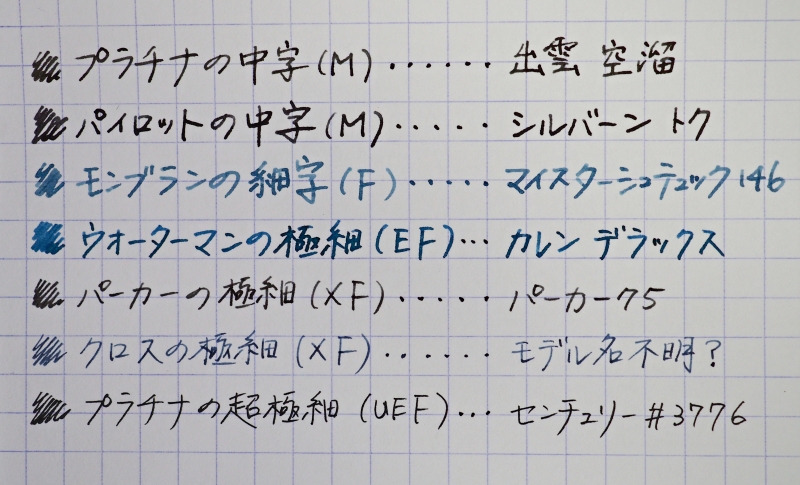 プラチナの中字(M)・・・・・・出雲 空溜
パイロットの中字(M)・・・・・シルバーン トク
モンブランの細字(F)・・・・・マイスターシュテュック146
ウォーターマンの極細(EF)・・・カレン デラックス
パーカーの極細(XF)・・・・・パーカー75
クロスの極細(XF)・・・・・・モデル名不明?
プラチナの超極細(UEF)・・・センチュリー#3776